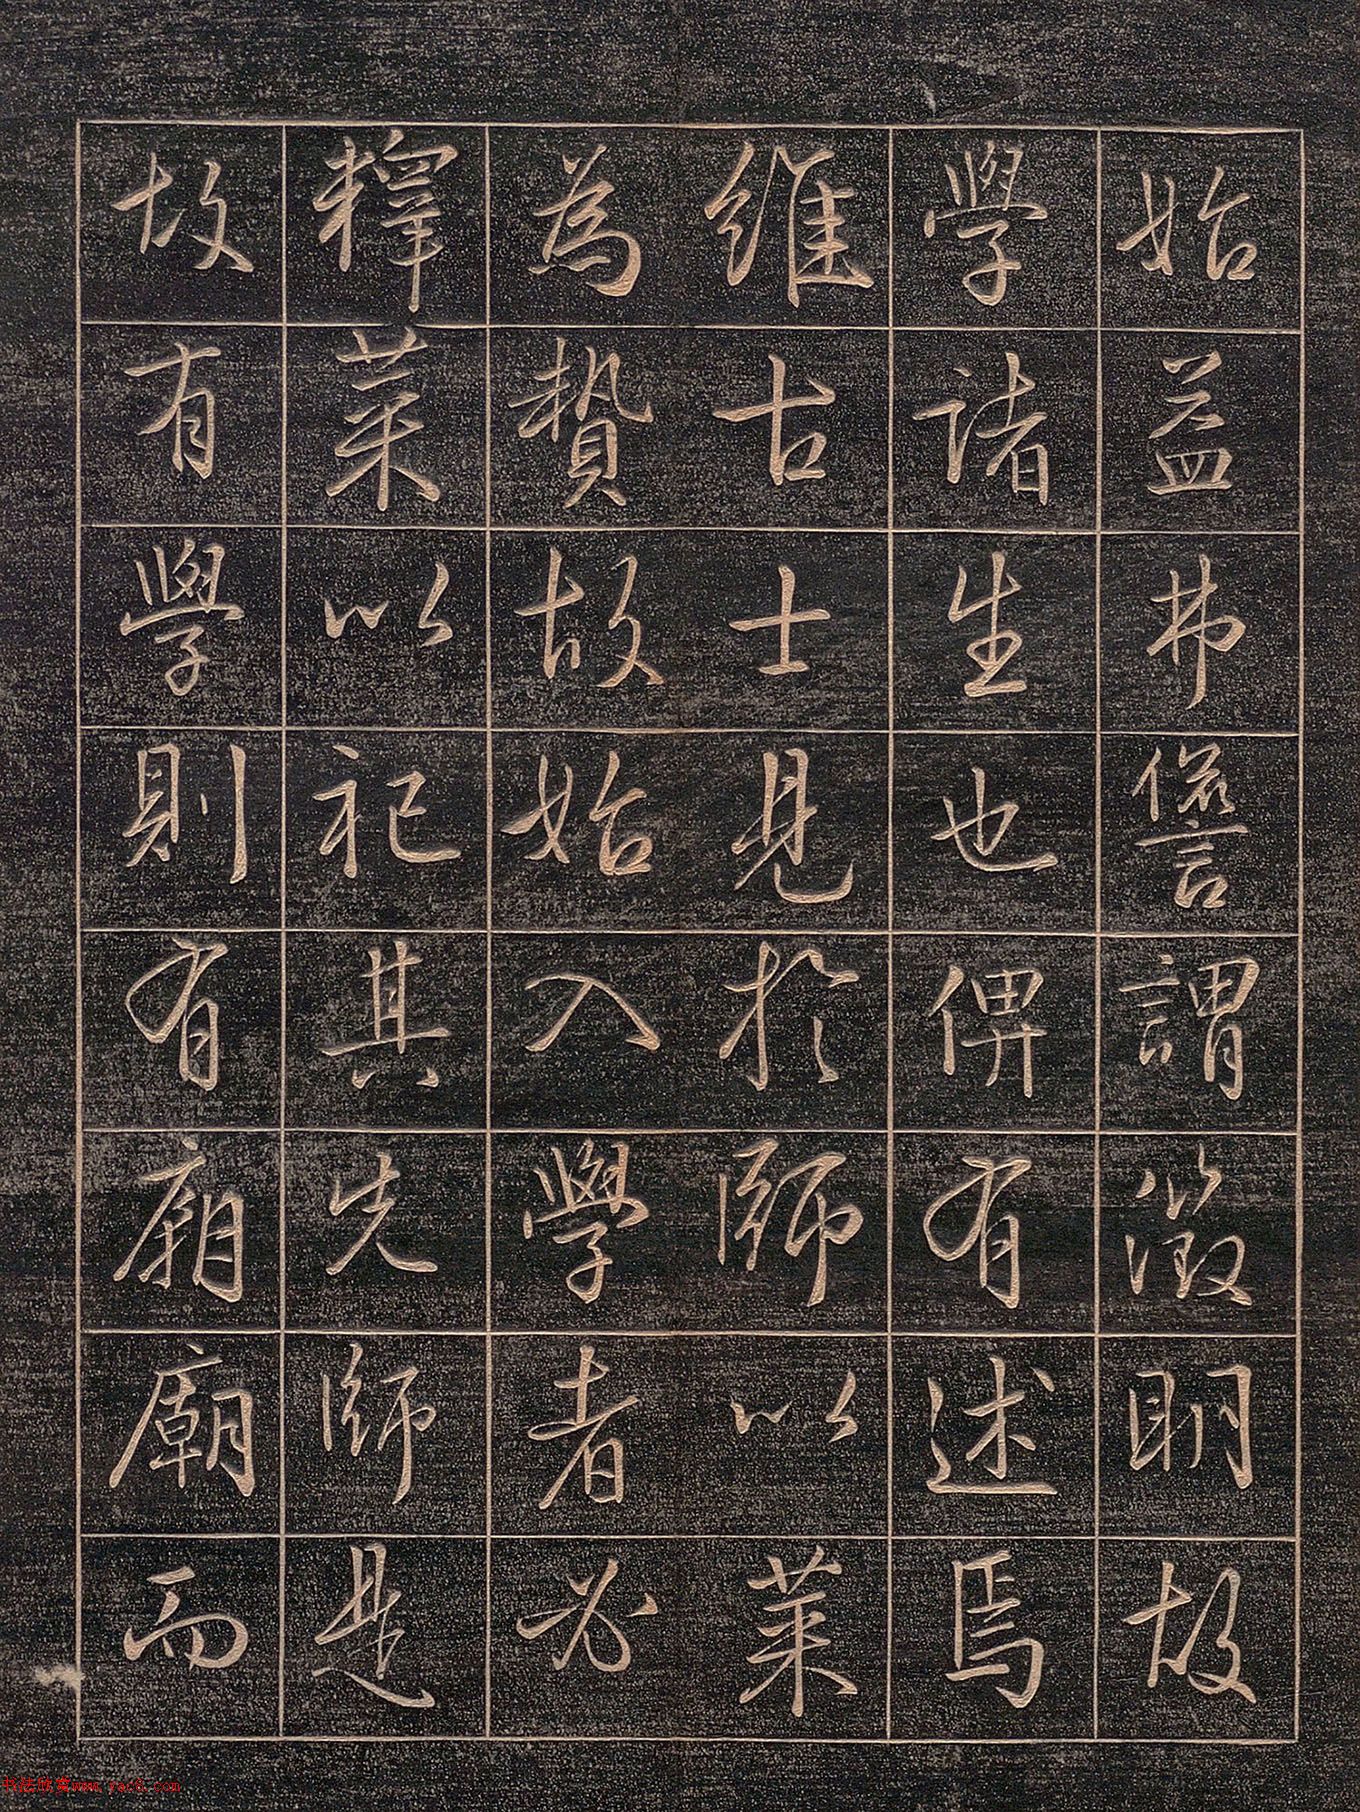 始益弗諐謂徵明故
學諸生也俾有述焉
維古士見於師以菜
為贄故始入學者必
釋菜以祀其先師是
故有學則有廟廟而